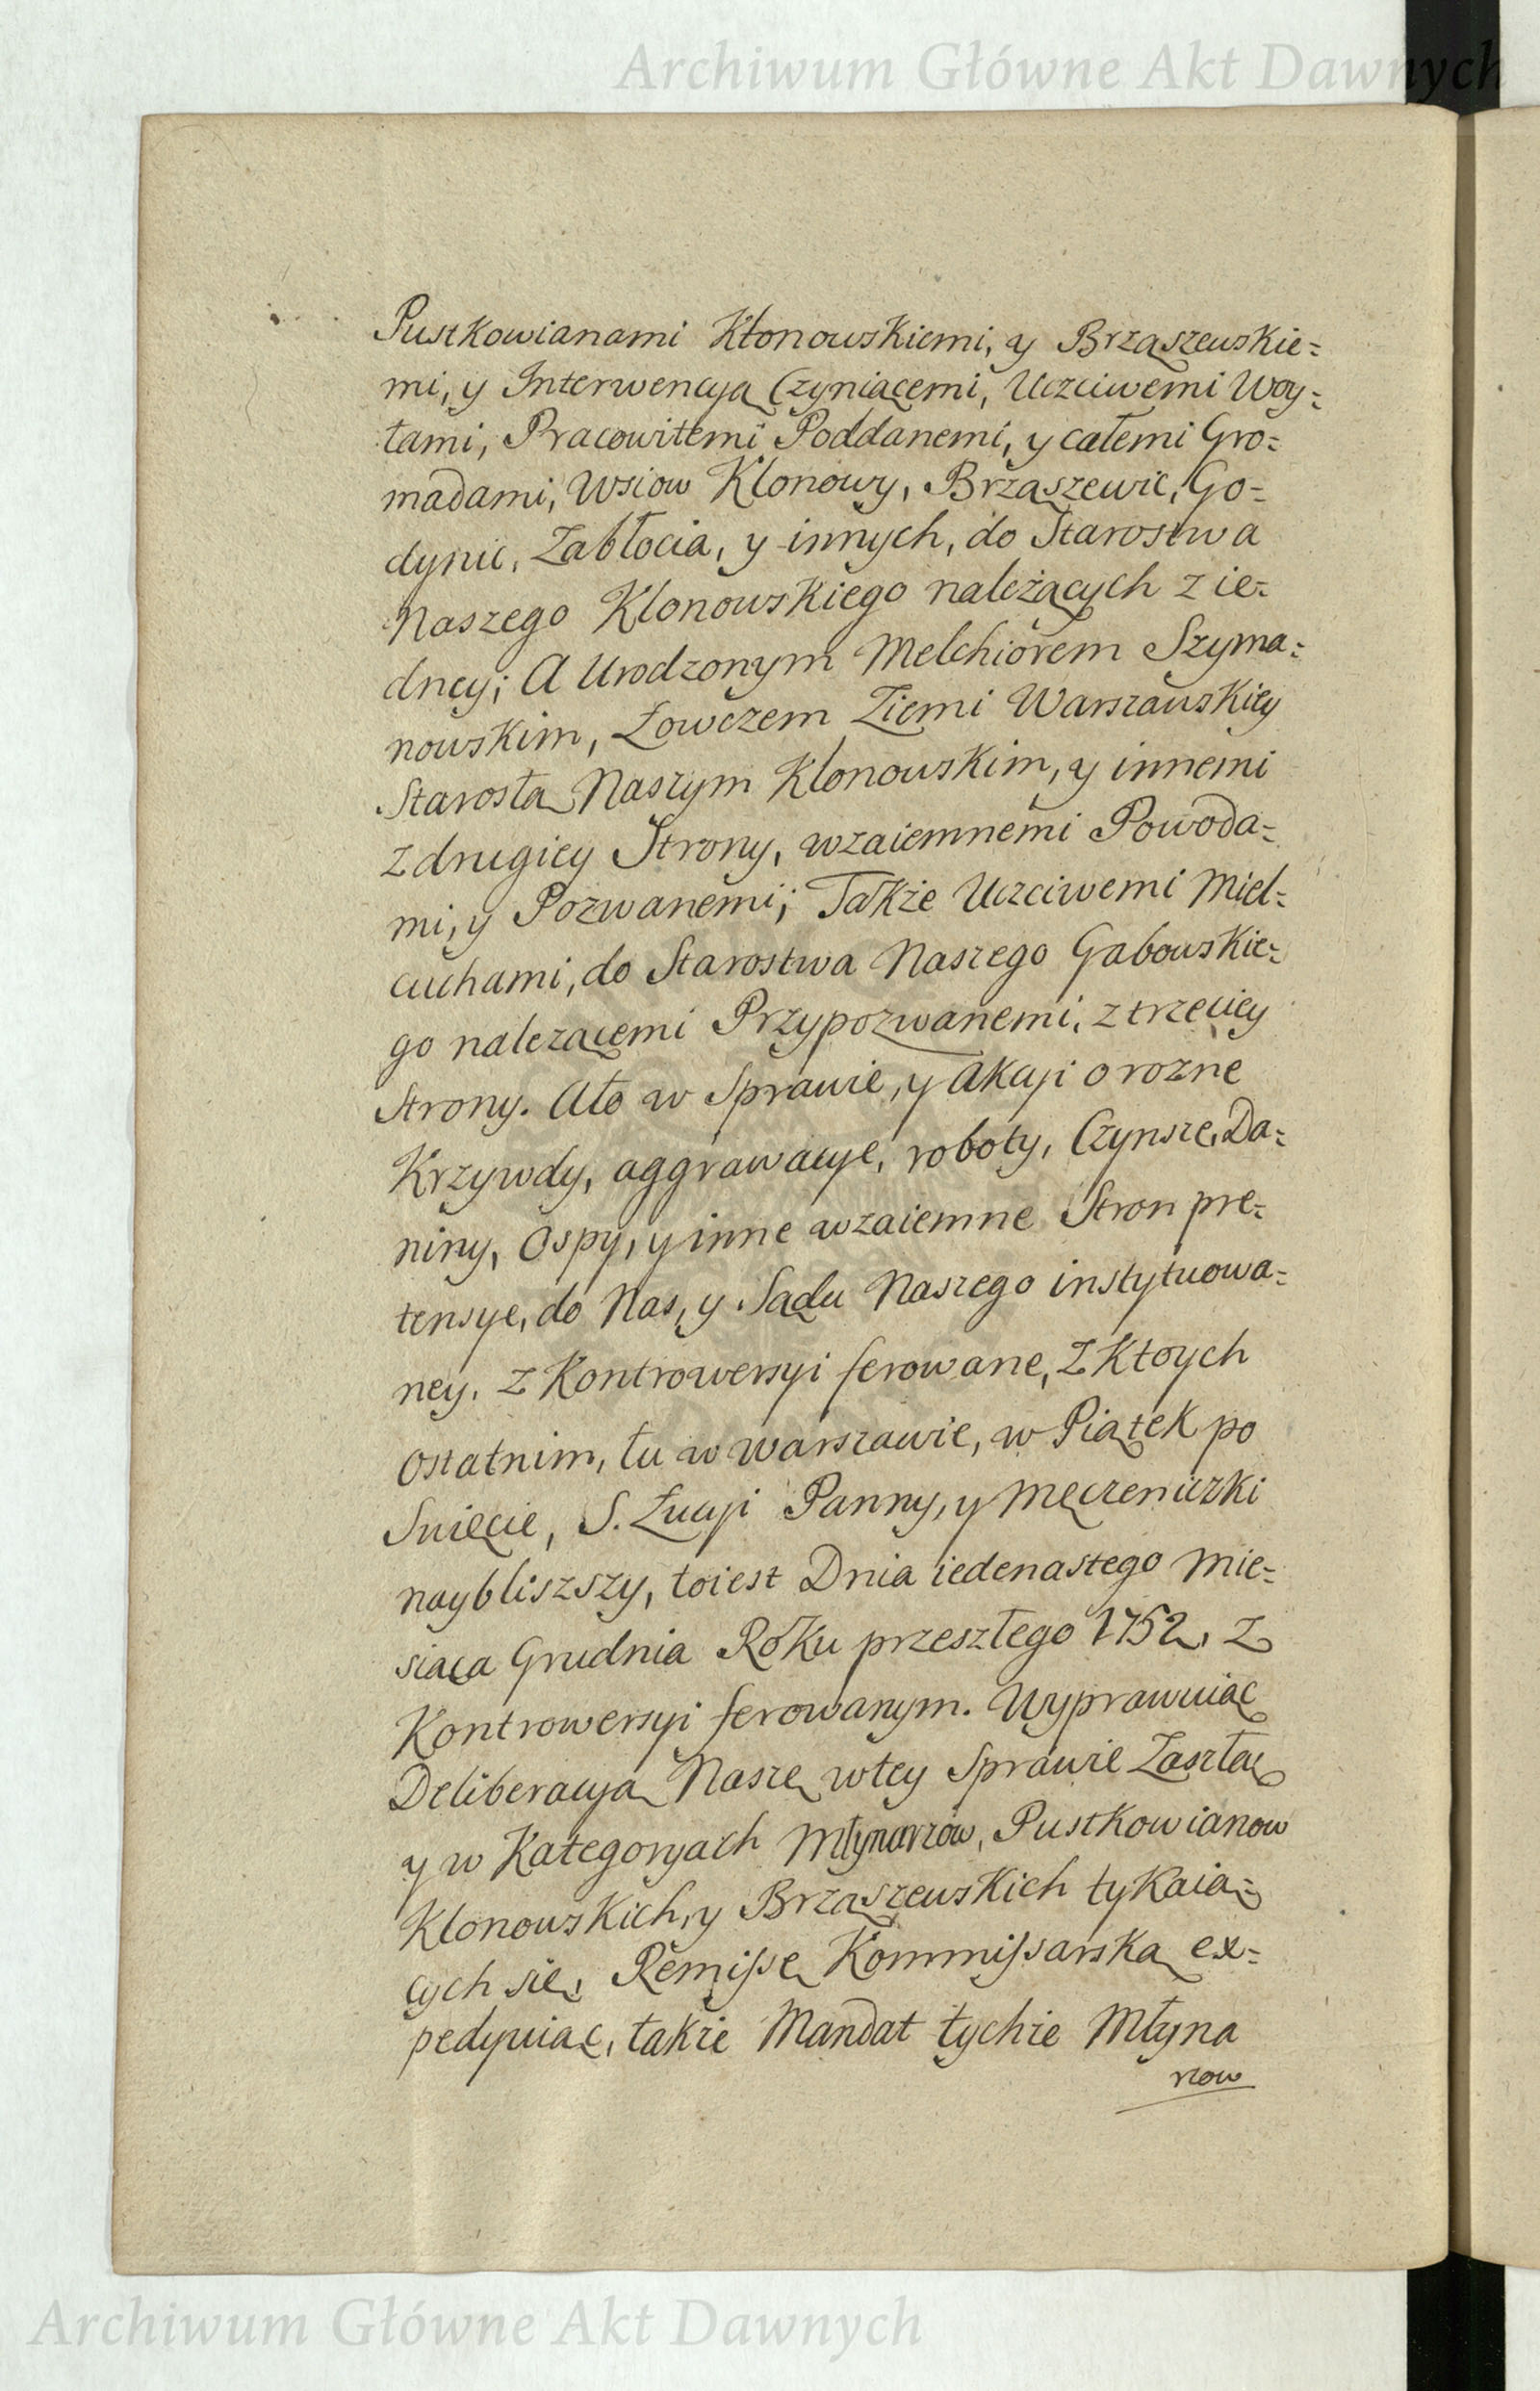 Archiwum Główne Akt Dawnych
Pustkowianami Kłonowskiemi, y Brząszewskie=
mi, y Interwencyą Czyniącemi, Uczciwemi Woy=
tami, Pracowitemi Poddanemi, y całemi Gro=
madami, Wsiow Klonowy, Brząszewic, Go=
dynic, Zabłocia, y innych, do Starostwa
Naszego Klonowskiego należących z ie=
dney; A Urodzonym Melchiorem Szyma=
nowskim, Łowczem Ziemi Warszawskiey
Starostą Naszym Klonowskim, y innemi
z drugiey Strony, wzaiemnemi Powoda=
mi, y Pozwanemi; Także Uczciwemi Miel=
cuchami, do Starostwa Naszego Gabowskie=
go nalezącemi Przypozwanemi, z trzeciey
Strony. Ato w Sprawie, y Akcyi o rozne
Krzywdy, aggrawacye, roboty, Czynsze, Da=
niny, Ospy, y inne wzaiemne Stron pre=
tensye, do Nas, y Sądu Naszego instytuowa=
ney. z Kontrowersyi ferowane, Z Ktoych
ostatnim, tu w Warszawie, w Piątek po
Swięcie, S. Łucyi Panny, y Męczeniczki
naybliszszy, toiest Dnia iedenastego Mie=
siąca Grudnia Roku przeszłego 1752. Z
Kontrowersyi ferowanym. Wyprawuiąc
Deliberacyą Naszę w tey Sprawie Zaszłą
y w Kategoryach Młynarzow, Pustkowianow
Klonowskich, y Brząszewskich tykaią=
cych się, Remissę Kommissarską ex=
pedyuiąc, takze Mandat tychze Młyna
rzow
Archiwum Główne Akt Dawnych